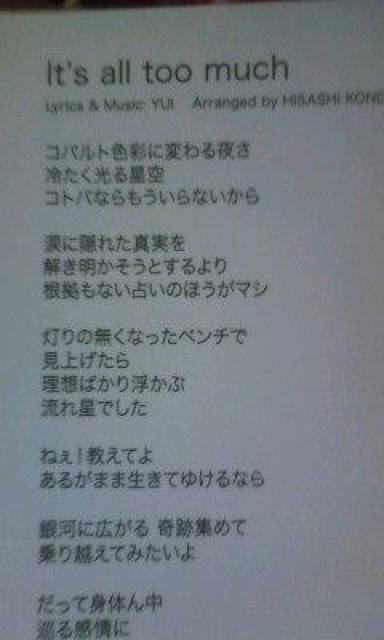 It's all too much
Lyrics & Music: YUI Arranged by HISASHI KOND
コバルト色彩に変わる夜さ
冷たく光る星空
コトバならもういらないから
涙に隠れた真実を
解き明かそうとするより
根拠もない占いのほうがマシ
灯りの無くなったベンチで
見上げたら
理想ばかり浮かぶ
流れ星でした
ねぇ!教えてよ
あるがまま生きてゆけるなら
銀河に広がる 奇跡集めて
乗り越えてみたいよ
だって身体ん中
巡る感情に